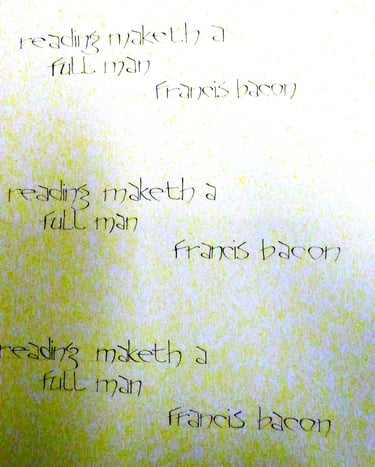 reading maketh a
full man
francis bacon
reading maketh a
full man
francis bacon
reading maketh a
full man
francis bacon